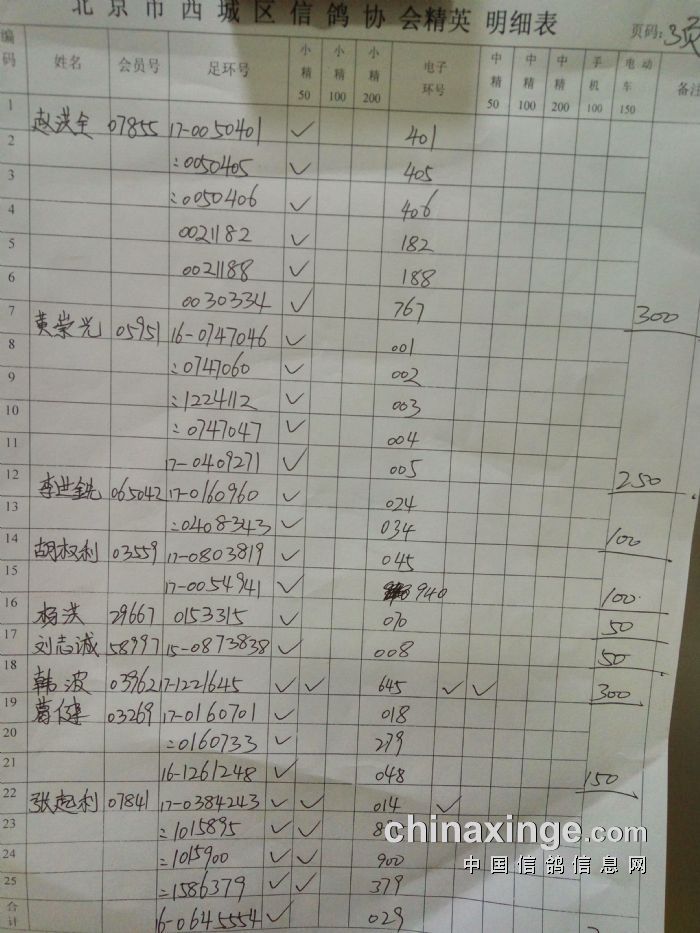 北京市西城区信鸽协会精英 明细表
页码:3页
编码 姓名 会员号 足环号 小精50 小精100 小精200 电子环号 中精50 中精100 中精200 手机100 电动车150 备注
1 赵洪全 07855 17-0050401 ✓ 401
2 :0050405 ✓ 405
3 :0050406 ✓ 406
4 0021182 ✓ 182
5 0021188 ✓ 188
6 0030334 ✓ 767 300
7 黄崇光 05951 16-0747046 ✓ 001
8 :0747060 ✓ 002
9 :1224112 ✓ 003
10 :0747047 ✓ 004
11 17-0409271 ✓ 005 250
12 李世 065042 17-0160960 ✓ 024
13 :0408343 ✓ 034 100
14 胡权利 03559 17-0803819 ✓ 045
15 17-0054941 ✓ 940 100
16 杨洪 29667 0153315 ✓ 070 50
17 刘志诚 58997 15-0873838 ✓ 008 50
18 韩波 03962 17-1221645 ✓ ✓ 645 ✓ ✓ 300
19 葛健 03269 17-0160701 ✓ 018
20 :0160733 ✓ 279
21 16-1261248 ✓ 048 150
22 张起利 07841 17-0384243 ✓ ✓ 014 ✓
23 :1015895 ✓ ✓
24 :1015900 ✓ ✓ 900
25 :1586379 ✓ ✓ 379
合计 16-0645554 ✓ 029
chinaxinge.com
中国信鸽信息网